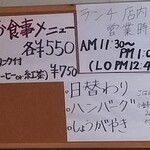 お食事メニュー
各¥550
ランク付
コーヒーor紅茶)¥750
ランチ店内
営業時
AM11:30〜
PM1:0
(LO PM12:4
・日替わり
・ハンバーグ
・しょうがやき